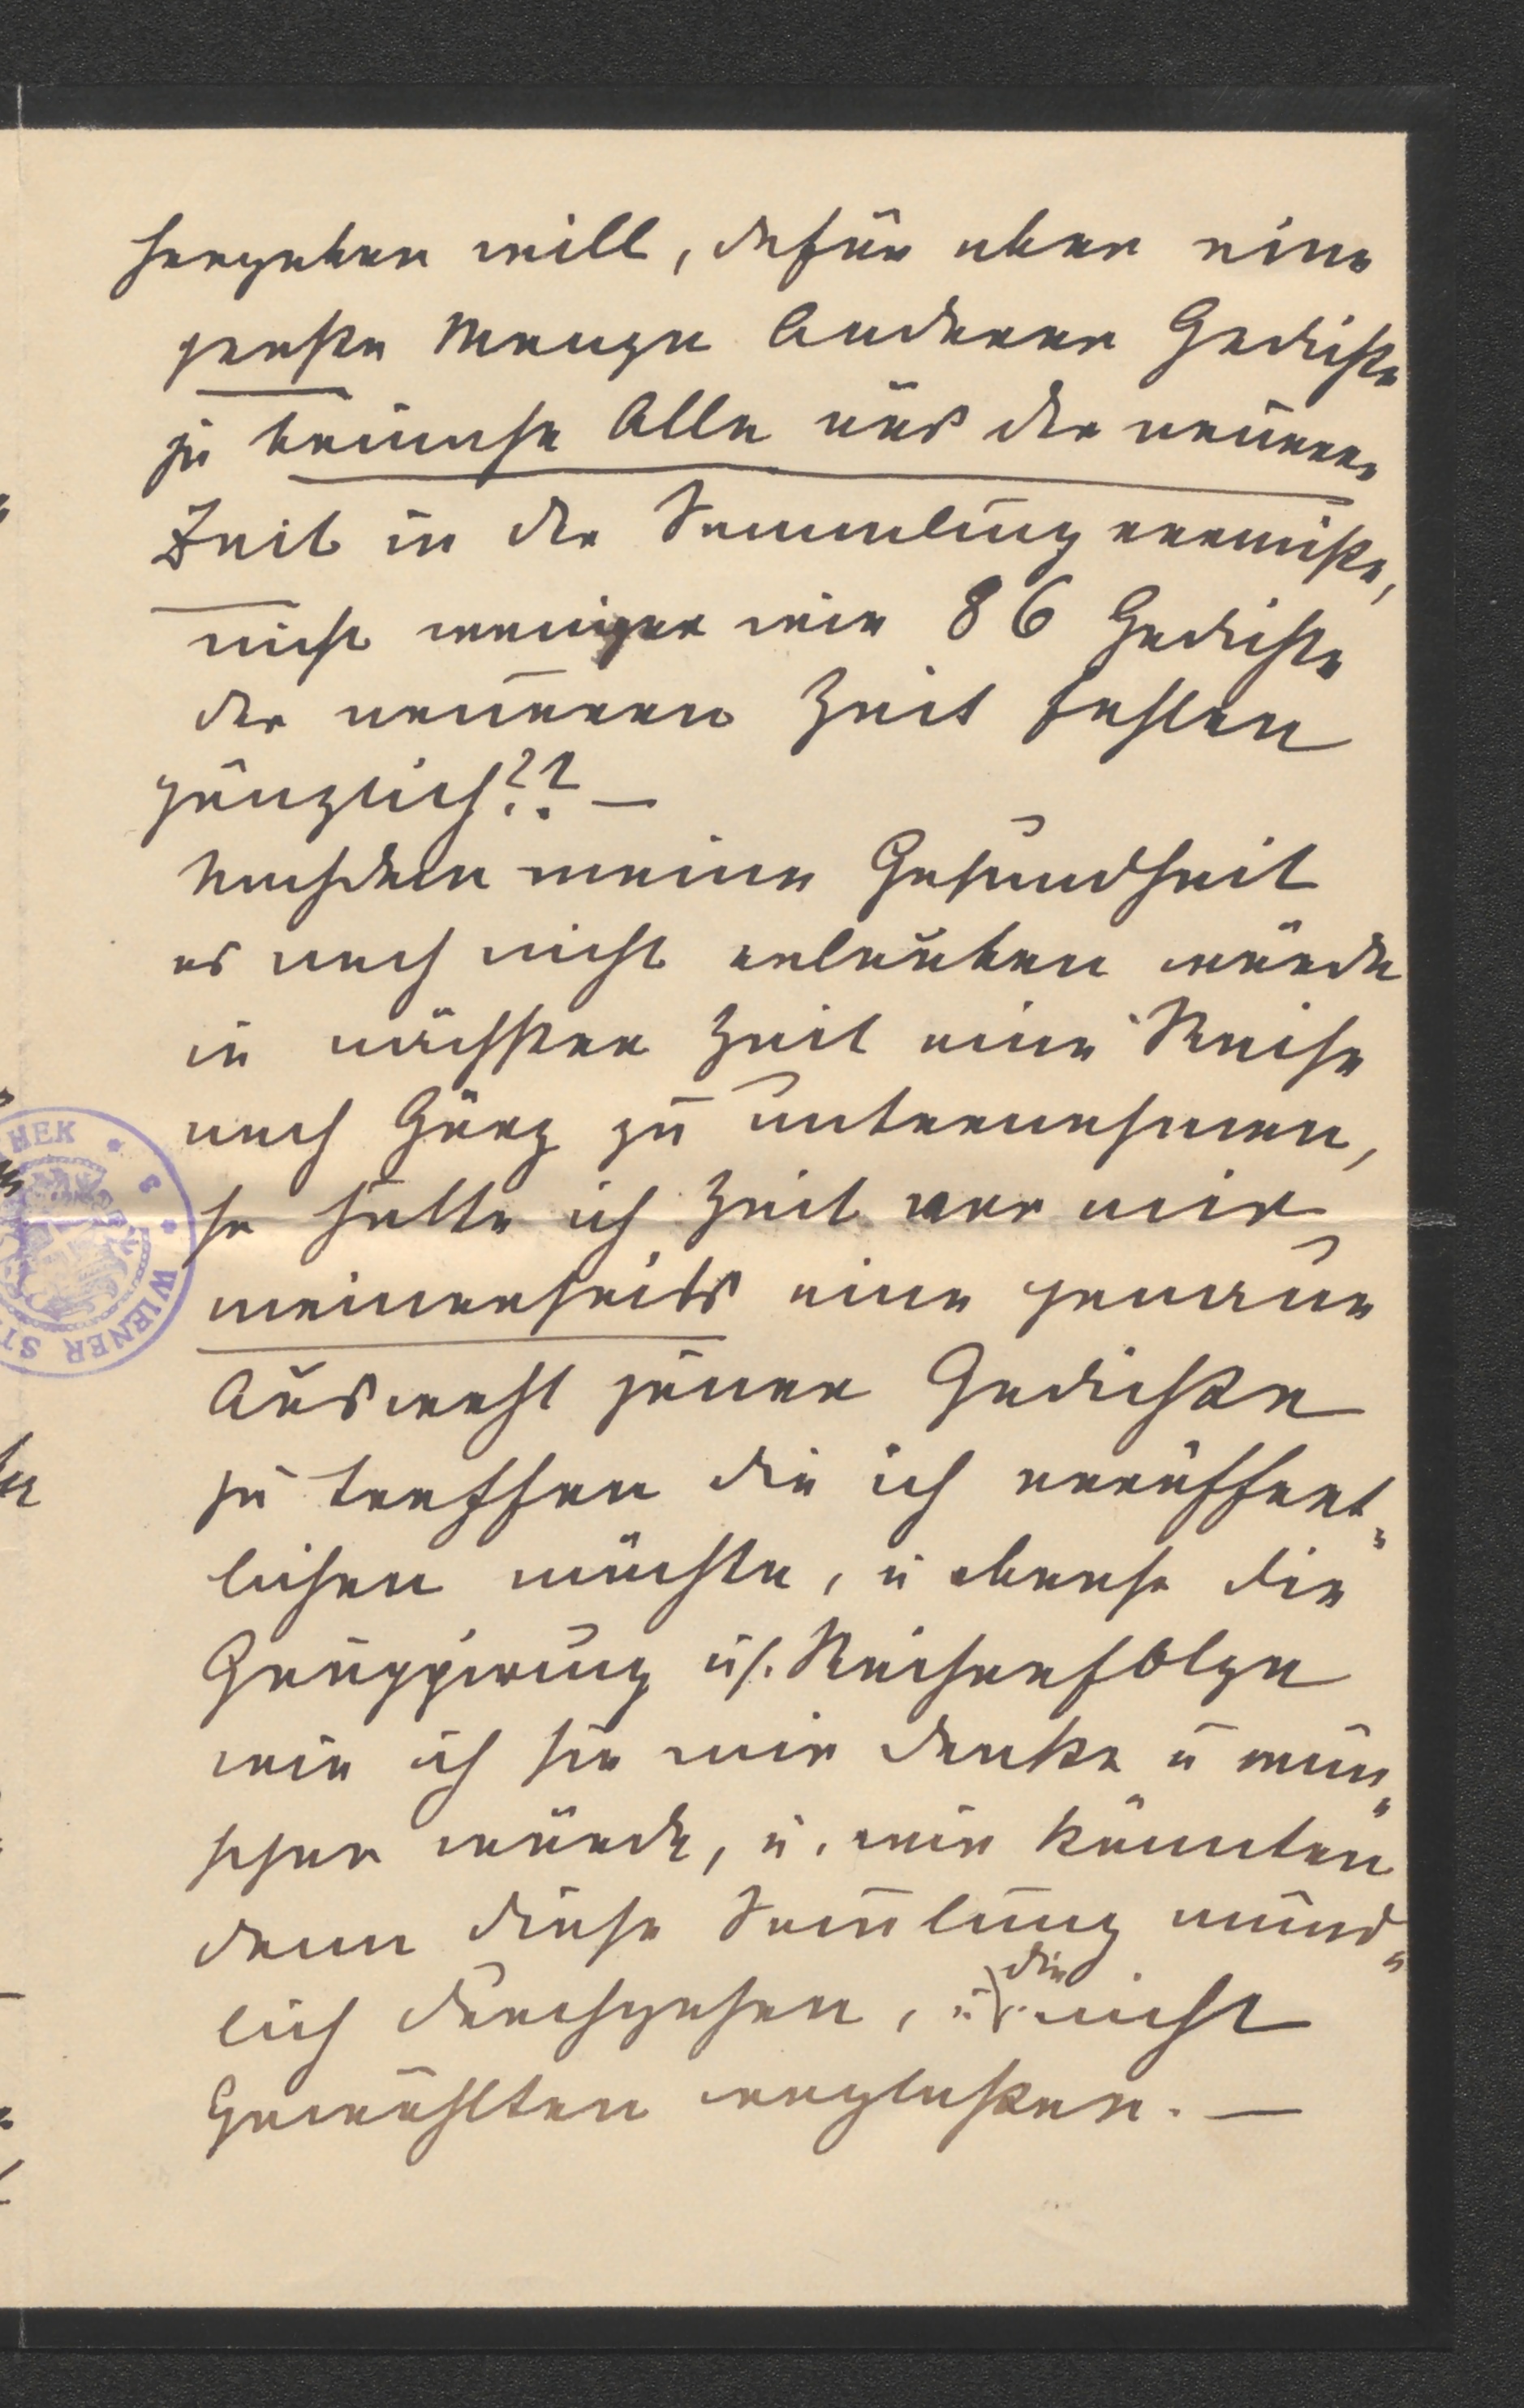 hergeben will, dafür aber eine
große Menge Anderer Gedichte
ja beinahe Alle aus der neueren
Zeit in der Sammlung vermiße,
nicht weniger wie 86 Gedichte
der neueren Zeit fehlen
gänzlich?? —
Nachdem meine Gesundheit
es noch nicht erlauben würde
in nächster Zeit eine Reise
nach Görz zu unternehmen,
so hätte ich Zeit vor mir
meinerseits eine genaue
Auswahl jener Gedichte
zu treffen die ich veröffent„
lichen möchte, u ebenso die
Gruppirung u. Reihenfolge
wie ich sie mir denke u wün„
schen würde, u. wir könnten
dann diese Sam̄lung münd„
lich durchgehen, u. die nicht
Gewählten weglaßen. —
HEK
WIENER ST